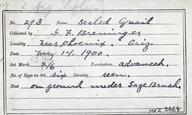 No. 293 Name, Scaled Quail
Collected by G. F. Breninger
Near Phoenix, Ariz.
Date, May 14, 1900.
Set Mark, 2/6 Incubation, advanced.
No. of Eggs in Set, six. Identity, seen.
Nest on ground under Sage Brush,